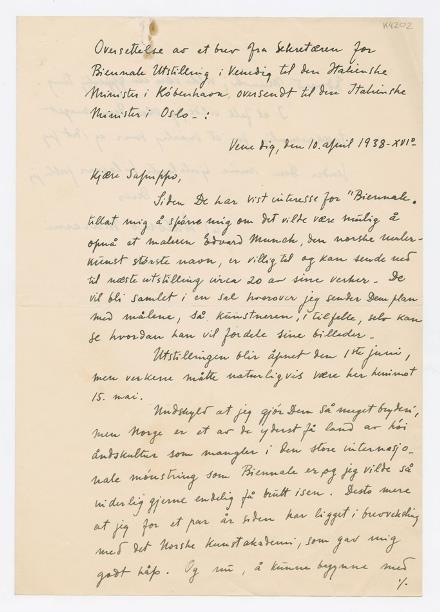 K4202
Oversettelse av et brev fra Sekretæren for
Biennale Utstilling i Venedig til den Italienske
Minister i København, oversendt til den Italienske
Minister i Oslo -:
Venedig, den 10. april 1938-XVI°
Kjære Sapuppo,
Siden De har vist interesse for "Biennale"
tillat mig å spørre mig om det vilde være mulig å
opnå at maleren Edvard Munch, den norske maler-
kunst største navn, er villig til og kan sende ned
til næste utstilling circa 20 av sine verker. De
vil bli samlet i en sal hvorover jeg sender Dem plan
med målene, så kunstneren, i tilfelle, selv kan
se hvordan han vil fordele sine billeder.
Utstillingen blir åpnet den 1ste juni,
men verkerne måtte naturligvis være her henimot
15. mai.
Undskyld at jeg gjör Dem så meget bryderi,
men Norge er et av de yderst få land av höi
åndskultur som mangler i den store internasjo-
nale mönstring som Biennale er og jeg vilde så
inderlig gjerne endelig få brutt isen. Desto mere
at jeg for et par år siden har ligget i brevveksling
med det Norske Kunstakademi, som gav mig
godt håp. Og nu, å kunne begynne med